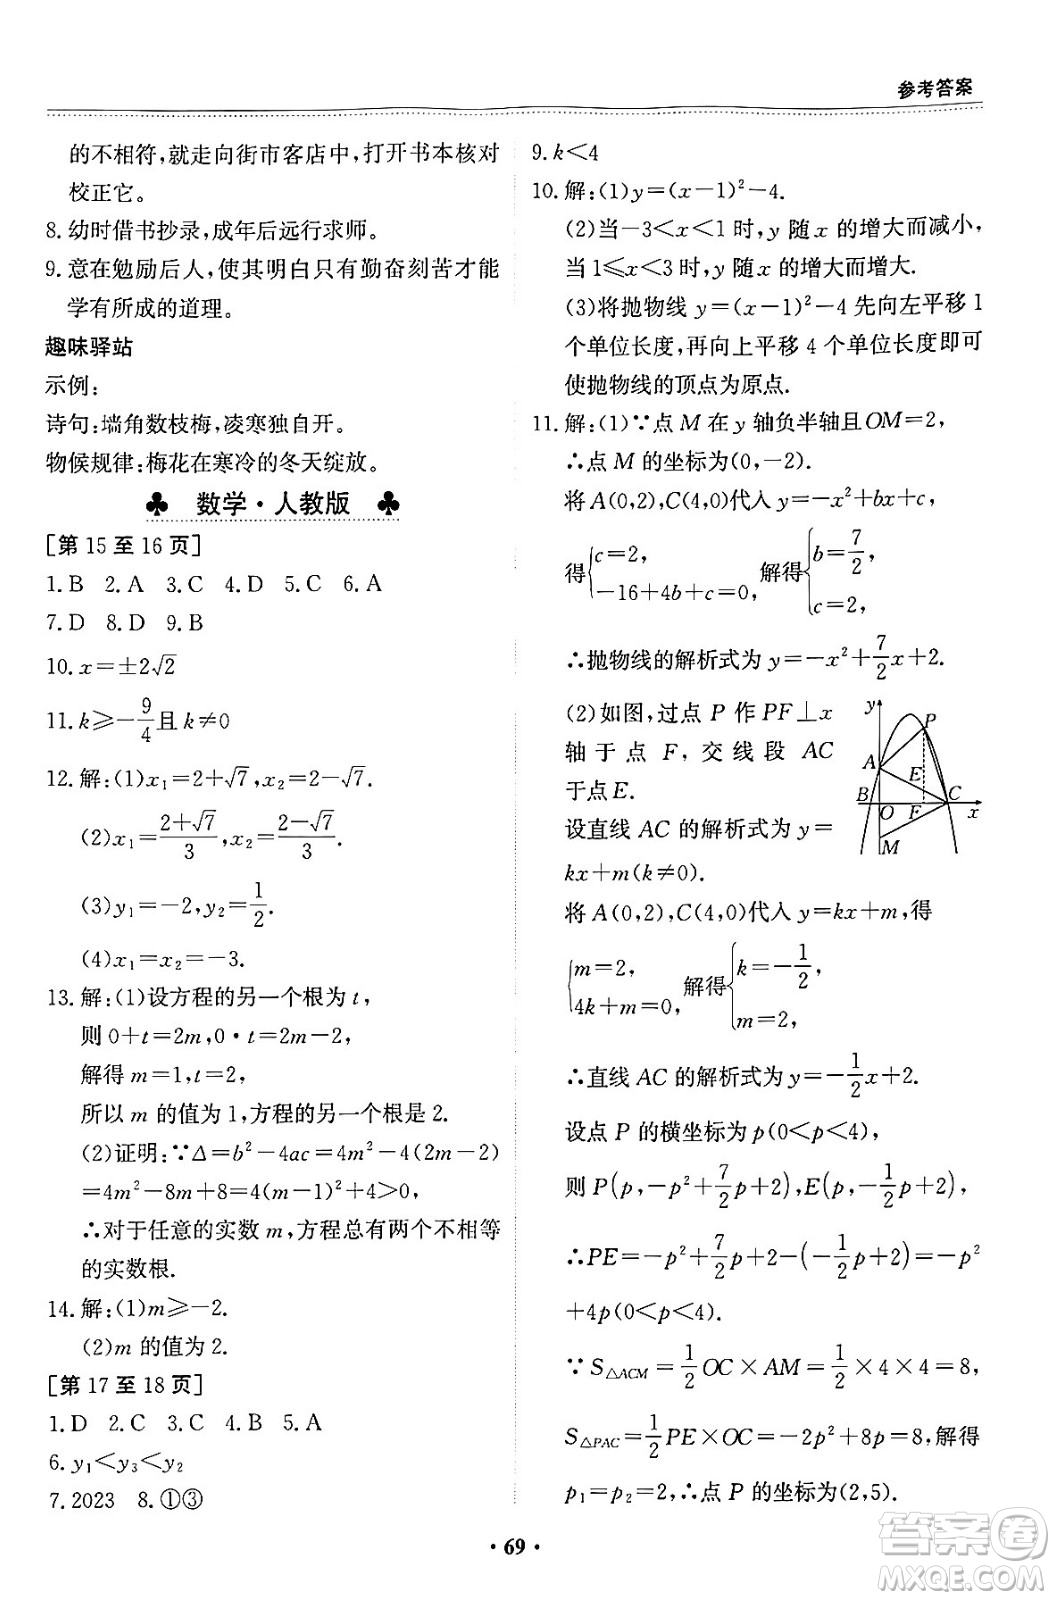 参考答案
的不相符,就走向街市客店中,打开书本核对
校正它。
8. 幼时借书抄录,成年后远行求师。
9. 意在勉励后人,使其明白只有勤奋刻苦才能
学有所成的道理。
趣味驿站
示例:
诗句:墙角数枝梅,凌寒独自开。
物候规律:梅花在寒冷的冬天绽放。
♣ 数学·人教版 ♣
[第 15 至 16 页]
1. B 2. A 3. C 4. D 5. C 6. A
7. D 8. D 9. B
10. x=±2√2
11. k≥-9/4且 k≠0
12. 解:(1)x₁=2+√7,x₂=2-√7.
(2)x₁=(2+√7)/3,x₂=(2-√7)/3.
(3)y₁=-2,y₂=1/2.
(4)x₁=x₂=-3.
13. 解:(1)设方程的另一个根为 t,
则 0+t=2m,0·t=2m-2,
解得 m=1,t=2,
所以 m 的值为 1,方程的另一个根是 2.
(2)证明:∵Δ=b²-4ac=4m²-4(2m-2)
=4m²-8m+8=4(m-1)²+4>0,
∴对于任意的实数 m,方程总有两个不相等
的实数根.
14. 解:(1)m≥-2.
(2)m 的值为 2.
[第 17 至 18 页]
1. D 2. C 3. C 4. B 5. A
6. y₁<y₃<y₂
7. 2023 8. ①③
9. k<4
10. 解:(1)y=(x-1)²-4.
(2)当-3<x<1 时,y 随 x 的增大而减小,
当 1≤x<3 时,y 随 x 的增大而增大.
(3)将抛物线 y=(x-1)²-4 先向左平移 1
个单位长度,再向上平移 4 个单位长度即可
使抛物线的顶点为原点.
11. 解:(1)∵点 M 在 y 轴负半轴且 OM=2,
∴点 M 的坐标为(0,-2).
将 A(0,2),C(4,0)代入 y=-x²+bx+c,
得{c=2, -16+4b+c=0, 解得{b=7/2, c=2,
∴抛物线的解析式为 y=-x²+7/2x+2.
(2)如图,过点 P 作 PF⊥x
轴于点 F,交线段 AC
于点 E.
y P A E B C O F x M
设直线 AC 的解析式为 y=
kx+m(k≠0).
将 A(0,2),C(4,0)代入 y=kx+m,得
{m=2, 4k+m=0, 解得{k=-1/2, m=2,
∴直线 AC 的解析式为 y=-1/2x+2.
设点 P 的横坐标为 p(0<p<4),
则 P(p,-p²+7/2p+2),E(p,-1/2p+2),
∴PE=-p²+7/2p+2-(-1/2p+2)=-p²
+4p(0<p<4).
∵S△ACM=1/2OC×AM=1/2×4×4=8,
S△PAC=1/2PE×OC=-2p²+8p=8,解得
p₁=p₂=2,∴点 P 的坐标为(2,5).
· 69 ·
答案圈
MXQE.COM